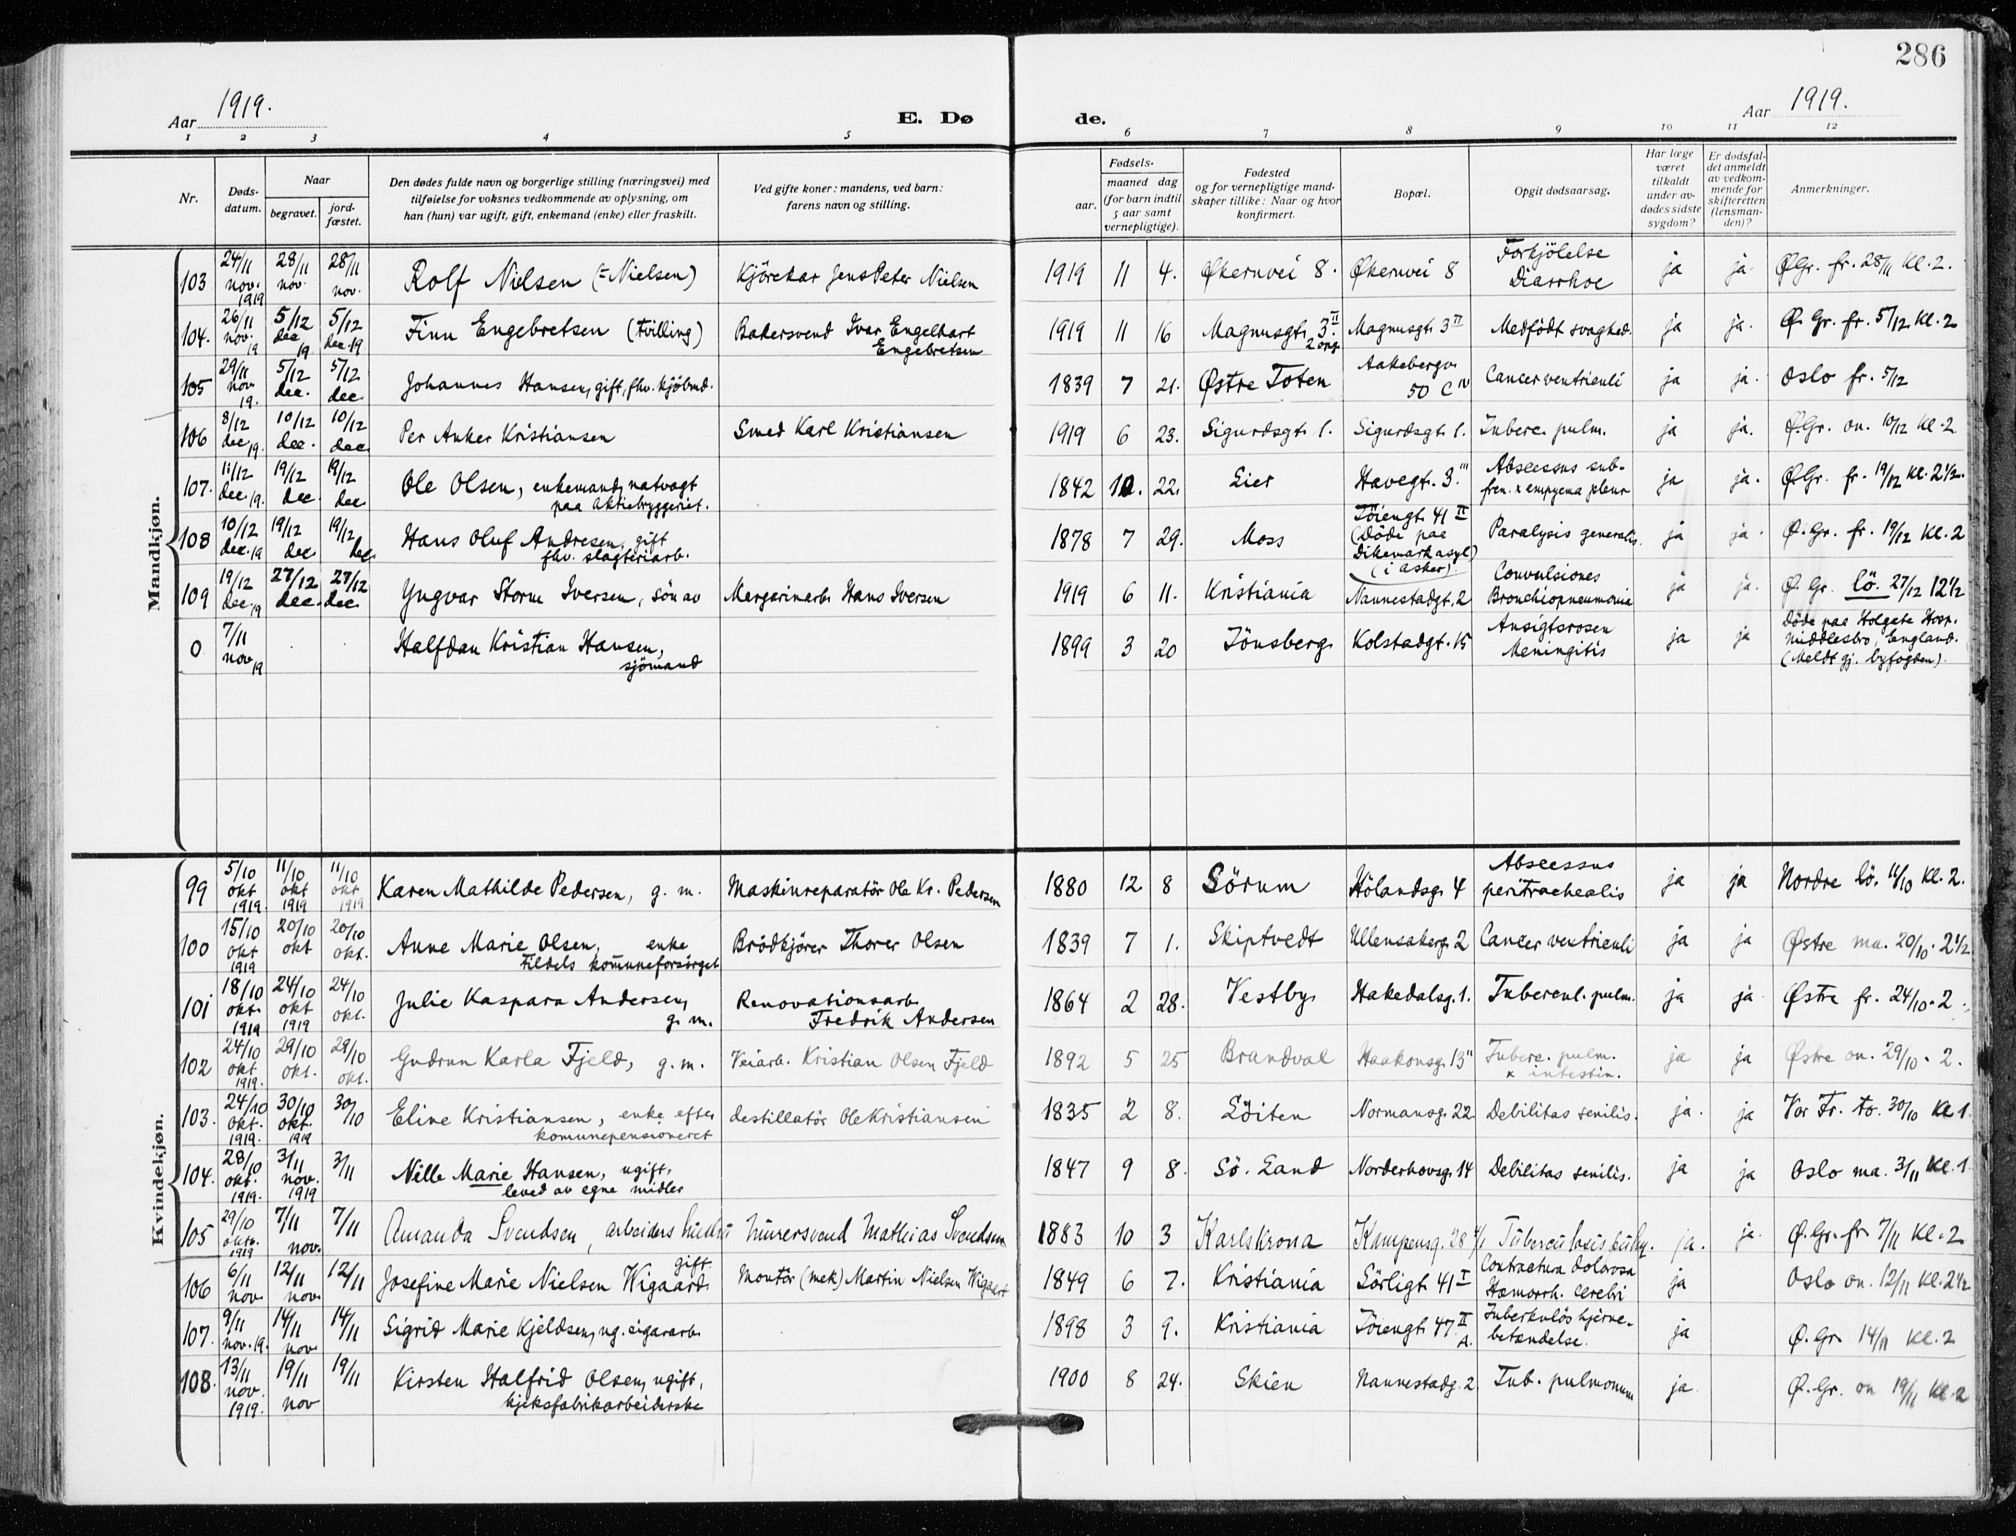 286
Aar 1919.
E. Dø de.
Aar 1919.
1 2 3 4 5 6 7 8 9 10 11 12
Nr.
Døds-datum.
Naar
begravet.
jord-fæstet.
Den dødes fulde navn og borgerlige stilling (næringsvei) med
tilføielse for voksnes vedkommende av oplysning, om
han (hun) var ugift, gift, enkemand (enke) eller fraskilt.
Ved gifte koner: mandens, ved barn:
farens navn og stilling.
Fødsels-
aar.
maaned dag
(for barn indtil
5 aar samt
vernepligtige).
Fødested
og for vernepligtige mand-
skaper tillike: Naar og hvor
konfirmert.
Bopæl.
Opgit dødsaarsag.
Har læge
været
tilkaldt
under av-
dødes sidste
sygdom?
Er dødsfal-
det anmeldt
av vedkom-
mende for
skifteretten
(lensman-
den)?
Anmerkninger.
Mandkjøn.
103 24/11 nov. 1919 28/11 nov. 28/11 nov. Rolf Nielsen (÷Nielsen) Kjörekar Jens Peter Nielsen 1919 11 4. Økernvei 8. Økernvei 8 Forkjölelse Diarrhoe ja ja. ØGr. fr. 28/11 Kl. 2.
104. 26/11 nov. 19 5/12 dec 19. 5/12 dec. 19 Finn Engebretsen (Tvilling) Bakersvend Ivar Engelhart Engebretsen 1919 11 16 Magnusgt. 3 II Magnusgt. 3 II Medfödt svaghed. ja ja. Ø. Gr. fr. 5/12 Kl. 2
105 29/11 nov 19. 5/12 dec. 5/12 dec Johannes Hansen, gift, fhv. kjöbmd. 1839 7 21. Østre Toten Aakebergv. 50 C IV Cancer ventriculi ja ja. Oslo fr. 5/12
106 8/12 dec 19. 10/12 dec. 10/12 dec. Per Anker Kristiansen Smed Karl Kristiansen 1919 6 23. Sigurdsgt. 1. Sigurdsgt. 1. Tuberc. pulm. ja ja. Ø.Gr. on. 10/12 Kl. 2
107. 11/12 dec. 19. 19/12 dec. 19/12 dec Ole Olsen, enkemand, natvagt paa Aktiebryggeriet. 1842 10. 22. Lier Havegt. 3. III Abscessus sub-fren. x empyema pleur ja ja. Ø.Gr. fr. 19/12 Kl. 2 1/2.
108 10/12 dec. 19 19/12 dec 19/12 dec Hans Oluf Andresen, gift fhv. slagteriarb. 1878 7 29. Moss Töiengt. 41 II (Döde paa Dikemark asyl i Asker). Paralysis generalis. ja ja. Ø. Gr. fr. 19/12 Kl. 2
109 19/12 dec. 19 27/12 dec. 27/12 dec. Yngvar Storm Iversen, sön av Margarinarb. Hans Iversen 1919 6 11. Kristiania Nannestadgt. 2 Convulsiones Bronchiopneumonia ja ja. Ø. Gr. lö. 27/12 12 1/2
0 7/11 nov 19 Halfdan Kristian Hansen, sjömand 1899 3 20 Tönsberg. Kolstadgt. 15 Ansigtsrosen Meningitis ja ja Döde paa Holgate Hosp. Middlesbro, England. (Meldt gj. byfogden).
Kvindekjøn.
99 5/10 okt 1919 11/10 okt 1919 11/10 okt 1919 Karen Mathilde Pedersen, g. m. Maskinreparatör Ole Kr. Pedersen 1880 12 8 Sörum Hölandsg. 4 Abscessus peritrachealis ja ja Nordre lö. 11/10 Kl. 2.
100 15/10 okt 1919 20/10 okt 20/10 okt. Anne Marie Olsen, enke tildels kommuneforsörget Brödkjörer Thorer Olsen 1839 7 1. Skiptvedt Ullensakerg. 2 Cancer ventriculi ja ja Østre ma. 20/10. 2 1/2
101 18/10 okt. 1919 24/10 okt 1919 24/10 okt. Julie Kaspara Andersen, g. m. Renovationsarb. Fredrik Andersen 1864 2 28. Vestby. Hakedalsg. 1. Tubercul. pulm. ja ja Østre fr. 24/10. 2.
102 24/10 okt 1919. 29/10 okt. 29/10 okt. Gudrun Karla Fjeld, g. m. Veiarb. Kristian Olsen Fjeld 1892 5 25 Brandval Haakonsg. 13 II Tuberc. pulm. x intestin. ja ja Østre on. 29/10. 2.
103. 24/10 okt. 1919. 30/10 okt. 1919 30/10 Eline Kristiansen, enke efter kommunepensioneret destillatör Ole Kristiansen 1835 2 8. Löiten Normansg. 22. Debilitas senilis. ja. ja Vor Fr. to. 30/10 Kl 1.
104. 28/10 okt. 1919. 3/11 nov. 1919 3/11 Nille Marie Hansen, ugift, leved av egne midler 1847 9 8. Sö. Land Norderhovsg. 14 Debilitas senilis. ja ja Oslo ma. 3/11 Kl. 1.
105 29/10 oktr. 1919 7/11 nov. 7/11 Amanda Svendsen, arbeiders hustru Murersvend Mathias Svendsen 1883 10 3 Karlskrona Kampensg. 28 Tuberculosis pulm. ja. ja. Ø. Gr. fr. 7/11 Kl. 2
106 6/11 nov. 12/11 nov. 12/11 Josefine Marie Nielsen Wigaard. gift. Montör (mek) Martin Nielsen Wigaart 1849 6 7. Kristiania Sörligt. 41 I Contractura dolorosa Hæmorrh. cerebri ja Oslo on. 12/11 Kl. 2 1/2
107. 9/11 nov. 19. 14/11 nov 14/11 Sigrid Marie Kjeldsen, ug. cigararb. 1898 3 9. Kristiania Töiengt. 47 II A. Tuberkulös hjerne-betændelse. ja Ø. Gr. 14/11 Kl. 2
108. 13/11 nov. 1919. 19/11 nov 19/11 Kirsten Halfrid Olsen, ugift, kjeksfabrikarbeiderske 1900 8 24. Skien Nannestadg. 2 Tub. pulmonum ja Ø. Gr. on 19/11 Kl. 2